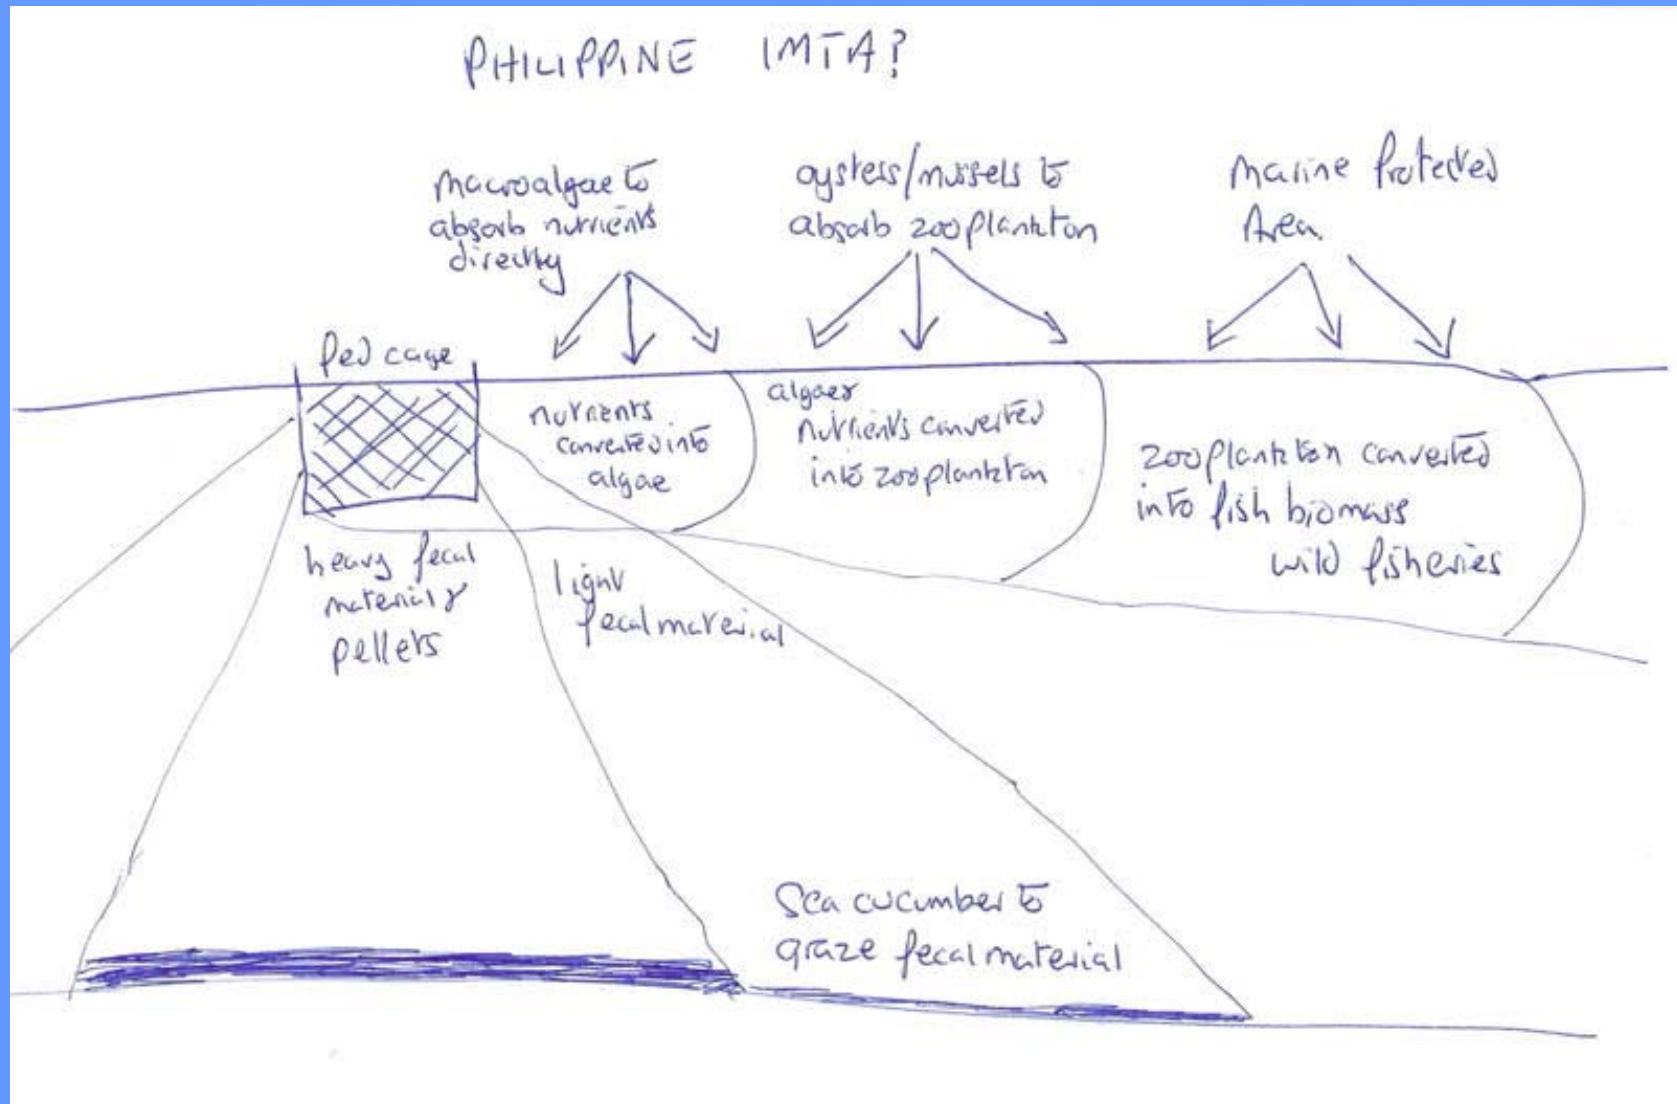 PHILIPPINE IMTA?
macroalgae to
absorb nutrients
directly
oysters/mussels to
absorb zooplankton
Marine Protected
Area.
fed cage
nutrients
converted into
algae
algae &
nutrients converted
into zooplankton
zooplankton converted
into fish biomass
wild fisheries
heavy fecal
material &
pellets
light
fecal material
Sea cucumber to
graze fecal material